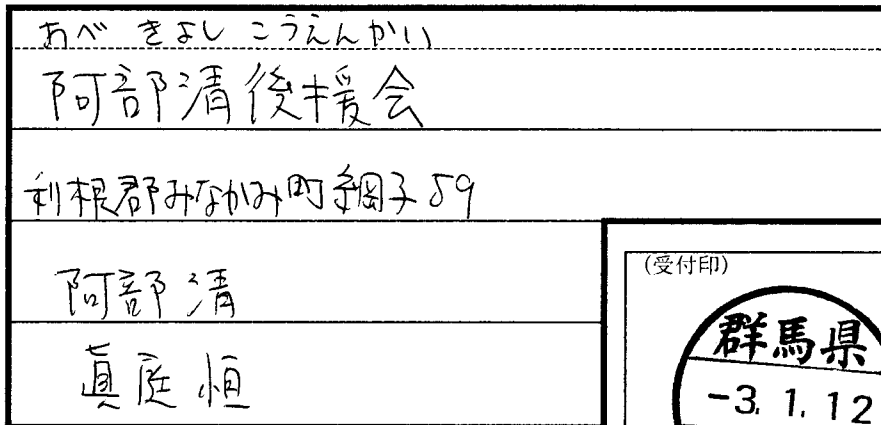 あべ きよし こうえんかい
阿部清後援会
利根郡みなかみ町綱子59
阿部清
眞庭恒
(受付印)
群馬県
-3.1.12